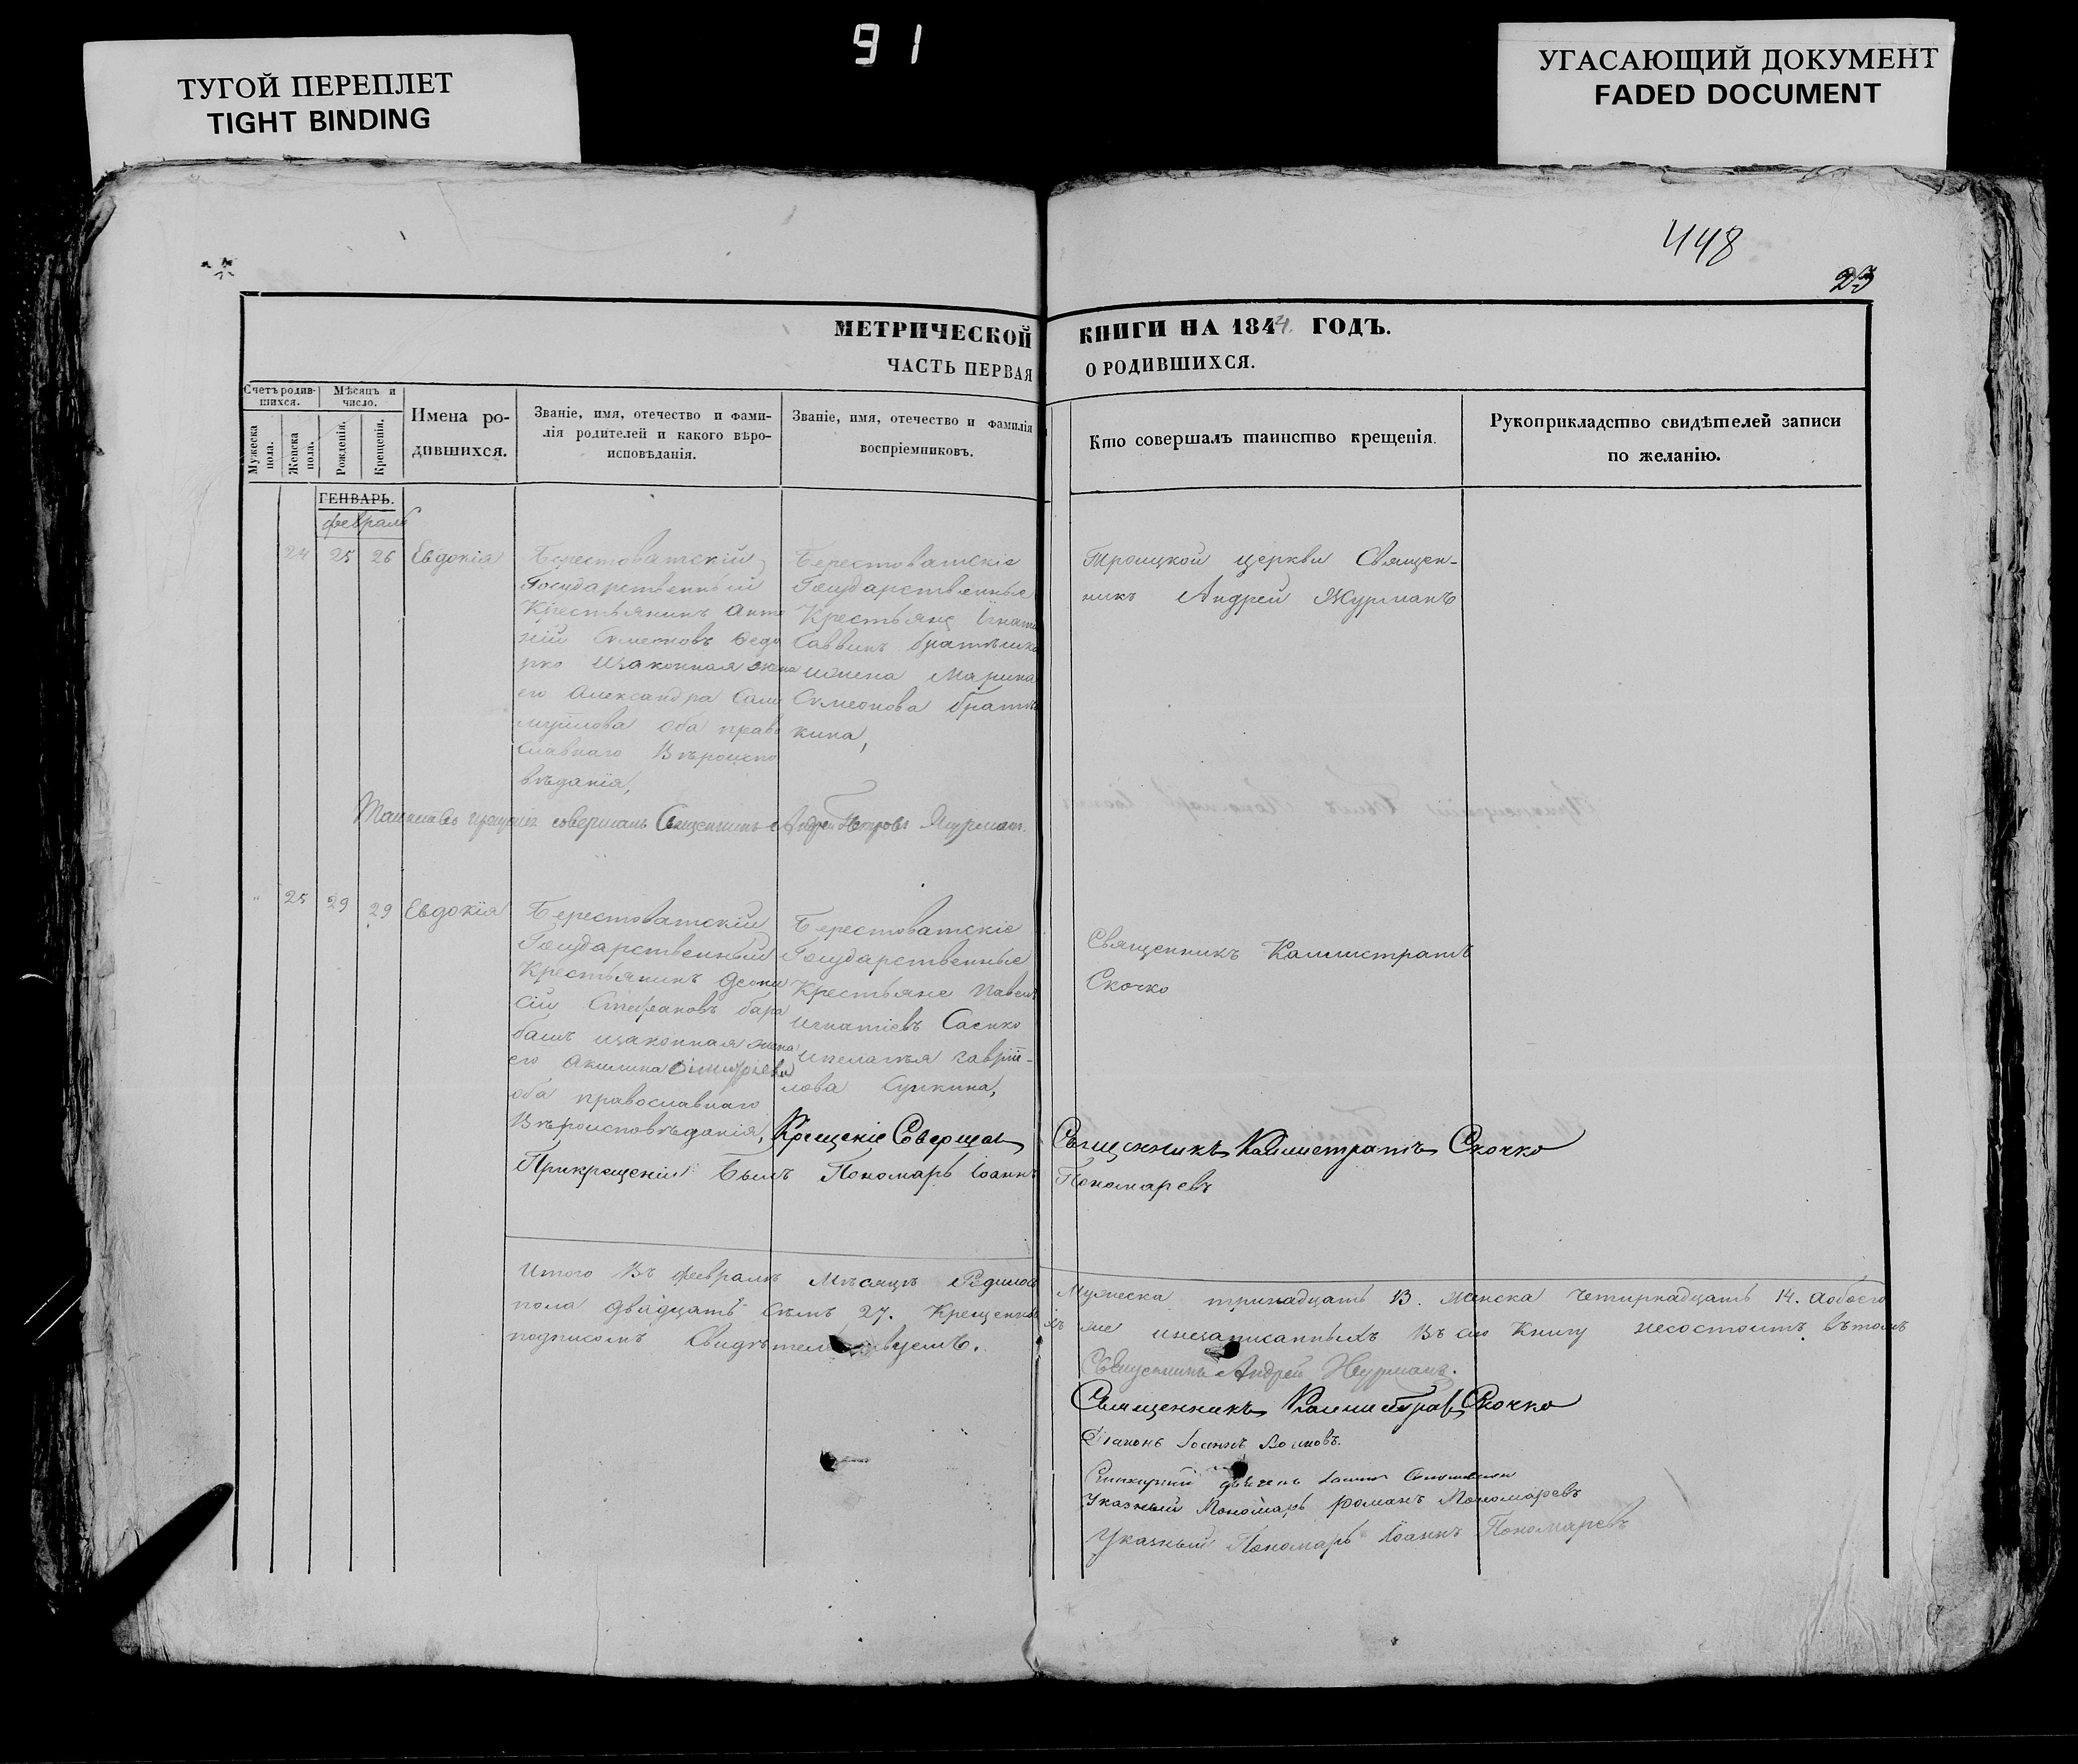 91
ТУГОЙ ПЕРЕПЛЕТ
TIGHT BINDING
УГАСАЮЩИЙ ДОКУМЕНТ
FADED DOCUMENT
448
23
МЕТРИЧЕСКОЙ КНИГИ НА 1844. ГОДЪ.
ЧАСТЬ ПЕРВАЯ О РОДИВШИХСЯ.
Счетъ родив-
шихся.
Мѣсяцъ и
число.
Мужеска
пола.
Женска
пола.
Рожденія.
Крещенія.
Имена ро-
дившихся.
Званіе, имя, отечество и фами-
лія родителей и какого вѣро-
исповѣданія.
Званіе, имя, отечество и фамилія
воспріемниковъ.
Кто совершалъ таинство крещенія.
Рукоприкладство свидѣтелей записи
по желанію.
ГЕНВАРЬ.
февраль
24 25 26 Евдокія
Берестоватскій
Государственный
Крестьянинъ Анто
ній Сѵмеоновъ Федо
рко изаконная жена
его Александра Сам
муйлова оба право
славнаго Вѣроиспо
вѣданія,
Берестоватскіе
Государственные
Крестьяне Игнатій
Саввинъ братѣшко
ижена Марина
Сѵмеонова братѣ
кина,
Троицкой церкви Священ-
никъ Андрей Журманъ
Таинство крещенія совершалъ Священникъ Андрей Петровъ Журманъ.
25 29 29 Евдокія
Берестоватскій
Государственный
Крестьянинъ Деони
сій Стефановъ бара
башъ изаконная жена
его Акилина Димитріева
оба православнаго
Вѣроисповѣданія,
Берестоватскіе
Государственные
Крестьяне Павелъ
Игнатіевъ Саенко
ипелагѣя гаврій-
лова
Священникъ Каллистратъ
Скочко
Крещеніе Совершалъ Священникъ Каллистратъ Скочко
Прикрещеніи былъ Пономарь Іоаннъ Пономаревъ
Итого Въ февралѣ Мѣсяцѣ Родилось Мужеска тринадцать 13. женска четырнадцать 14. аобоего
пола двадцать сѣмъ 27. Крещенны же инезаписанныхъ Въ сію Книгу несостоитъ вътомъ
подписомъ Свидѣтельствуемъ.
Священникъ Андрей Журманъ.
Священникъ Каллистратъ Скочко
Діаконъ Іоаннъ
Указный Пономарь Романъ Пономаревъ
Указный Пономарь Іоаннъ Пономаревъ